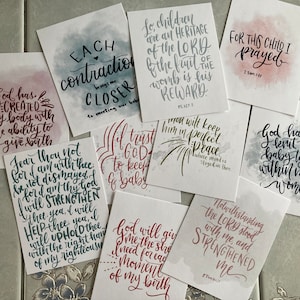 EACH
contraction
brings me
CLOSER
to meeting my baby
So children
are an HERITAGE
of the LORD
& the fruit OF
THE womb is his
REWARD.
PS. 127:3
FOR THIS CHILD I
prayed
1 Sam 1:27
God has
CREATED
my body with
the ability to
give birth.
Fear thou not
for I am with thee
be not dismayed
for I am thy God
I will STRENGTHEN
thee yea, I will
HELP thee yea, I
will UPHOLD thee
with the right hand
of my righteousness
I trust
GOD
to
baby
keep
him in perfect
Peace
whose mind is
God will give
me the
need for each
moment
of my birth
Notwithstanding
the LORD stood
with me and
STRENGTHENED
me